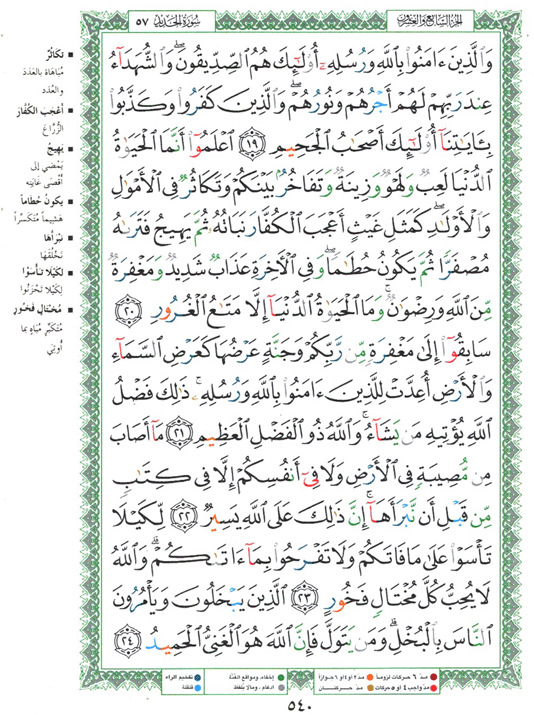 الجزء السابع والعشرون
سورة الحديد ٥٧
وَالَّذِينَ ءَامَنُوا۟ بِاللَّهِ وَرُسُلِهِۦٓ أُو۟لَٰٓئِكَ هُمُ الصِّدِّيقُونَ ۖ وَالشُّهَدَآءُ
عِندَ رَبِّهِمْ لَهُمْ أَجْرُهُمْ وَنُورُهُمْ ۖ وَالَّذِينَ كَفَرُوا۟ وَكَذَّبُوا۟
بِـَٔايَٰتِنَآ أُو۟لَٰٓئِكَ أَصْحَٰبُ الْجَحِيمِ ١٩ اعْلَمُوٓا۟ أَنَّمَا الْحَيَوٰةُ
الدُّنْيَا لَعِبٌ وَلَهْوٌ وَزِينَةٌ وَتَفَاخُرٌۢ بَيْنَكُمْ وَتَكَاثُرٌ فِى الْأَمْوَٰلِ
وَالْأَوْلَٰدِ ۖ كَمَثَلِ غَيْثٍ أَعْجَبَ الْكُفَّارَ نَبَاتُهُۥ ثُمَّ يَهِيجُ فَتَرَىٰهُ
مُصْفَرًّا ثُمَّ يَكُونُ حُطَٰمًا ۖ وَفِى الْءَاخِرَةِ عَذَابٌ شَدِيدٌ وَمَغْفِرَةٌ
مِّنَ اللَّهِ وَرِضْوَٰنٌ ۚ وَمَا الْحَيَوٰةُ الدُّنْيَآ إِلَّا مَتَٰعُ الْغُرُورِ ٢٠
سَابِقُوٓا۟ إِلَىٰ مَغْفِرَةٍ مِّن رَّبِّكُمْ وَجَنَّةٍ عَرْضُهَا كَعَرْضِ السَّمَآءِ
وَالْأَرْضِ أُعِدَّتْ لِلَّذِينَ ءَامَنُوا۟ بِاللَّهِ وَرُسُلِهِۦ ۚ ذَٰلِكَ فَضْلُ
اللَّهِ يُؤْتِيهِ مَن يَشَآءُ ۚ وَاللَّهُ ذُو الْفَضْلِ الْعَظِيمِ ٢١ مَآ أَصَابَ
مِن مُّصِيبَةٍ فِى الْأَرْضِ وَلَا فِىٓ أَنفُسِكُمْ إِلَّا فِى كِتَٰبٍ
مِّن قَبْلِ أَن نَّبْرَأَهَآ ۚ إِنَّ ذَٰلِكَ عَلَى اللَّهِ يَسِيرٌ ٢٢ لِّكَيْلَا
تَأْسَوْا۟ عَلَىٰ مَا فَاتَكُمْ وَلَا تَفْرَحُوا۟ بِمَآ ءَاتَىٰكُمْ ۗ وَاللَّهُ
لَا يُحِبُّ كُلَّ مُخْتَالٍ فَخُورٍ ٢٣ الَّذِينَ يَبْخَلُونَ وَيَأْمُرُونَ
النَّاسَ بِالْبُخْلِ ۗ وَمَن يَتَوَلَّ فَإِنَّ اللَّهَ هُوَ الْغَنِىُّ الْحَمِيدُ ٢٤
تَكَاثُرٌ
مُبَاهَاة بالعَدَدِ
والعُدَد
أَعْجَبَ الكُفَّارَ
الزُّرَّاعَ
يَهِيجُ
يَمْضِي إلى
أقْصَى غَايَتِه
يَكُونُ حُطَاماً
هَشِيماً مُتَكَسِّراً
نَبْرَأَهَا
نَخْلُقَهَا
لِكَيْلا تَأْسَوْا
لِكَيْلا تَحْزَنُوا
مُخْتَالٍ فَخُورٍ
مُتَكَبِّرٍ مُبَاهٍ بما
أُوتِيَ
مدّ ٦ حركات لزوماً
مدّ ٢ أو ٤ أو ٦ جوازاً
إخفاء، ومواقع الغُنَّة
تفخيم الراء
مدّ واجب ٤ أو ٥ حركات
مدّ حركتان
ادغام، وما لا يُلفظ
قلقلة
٥٤٠